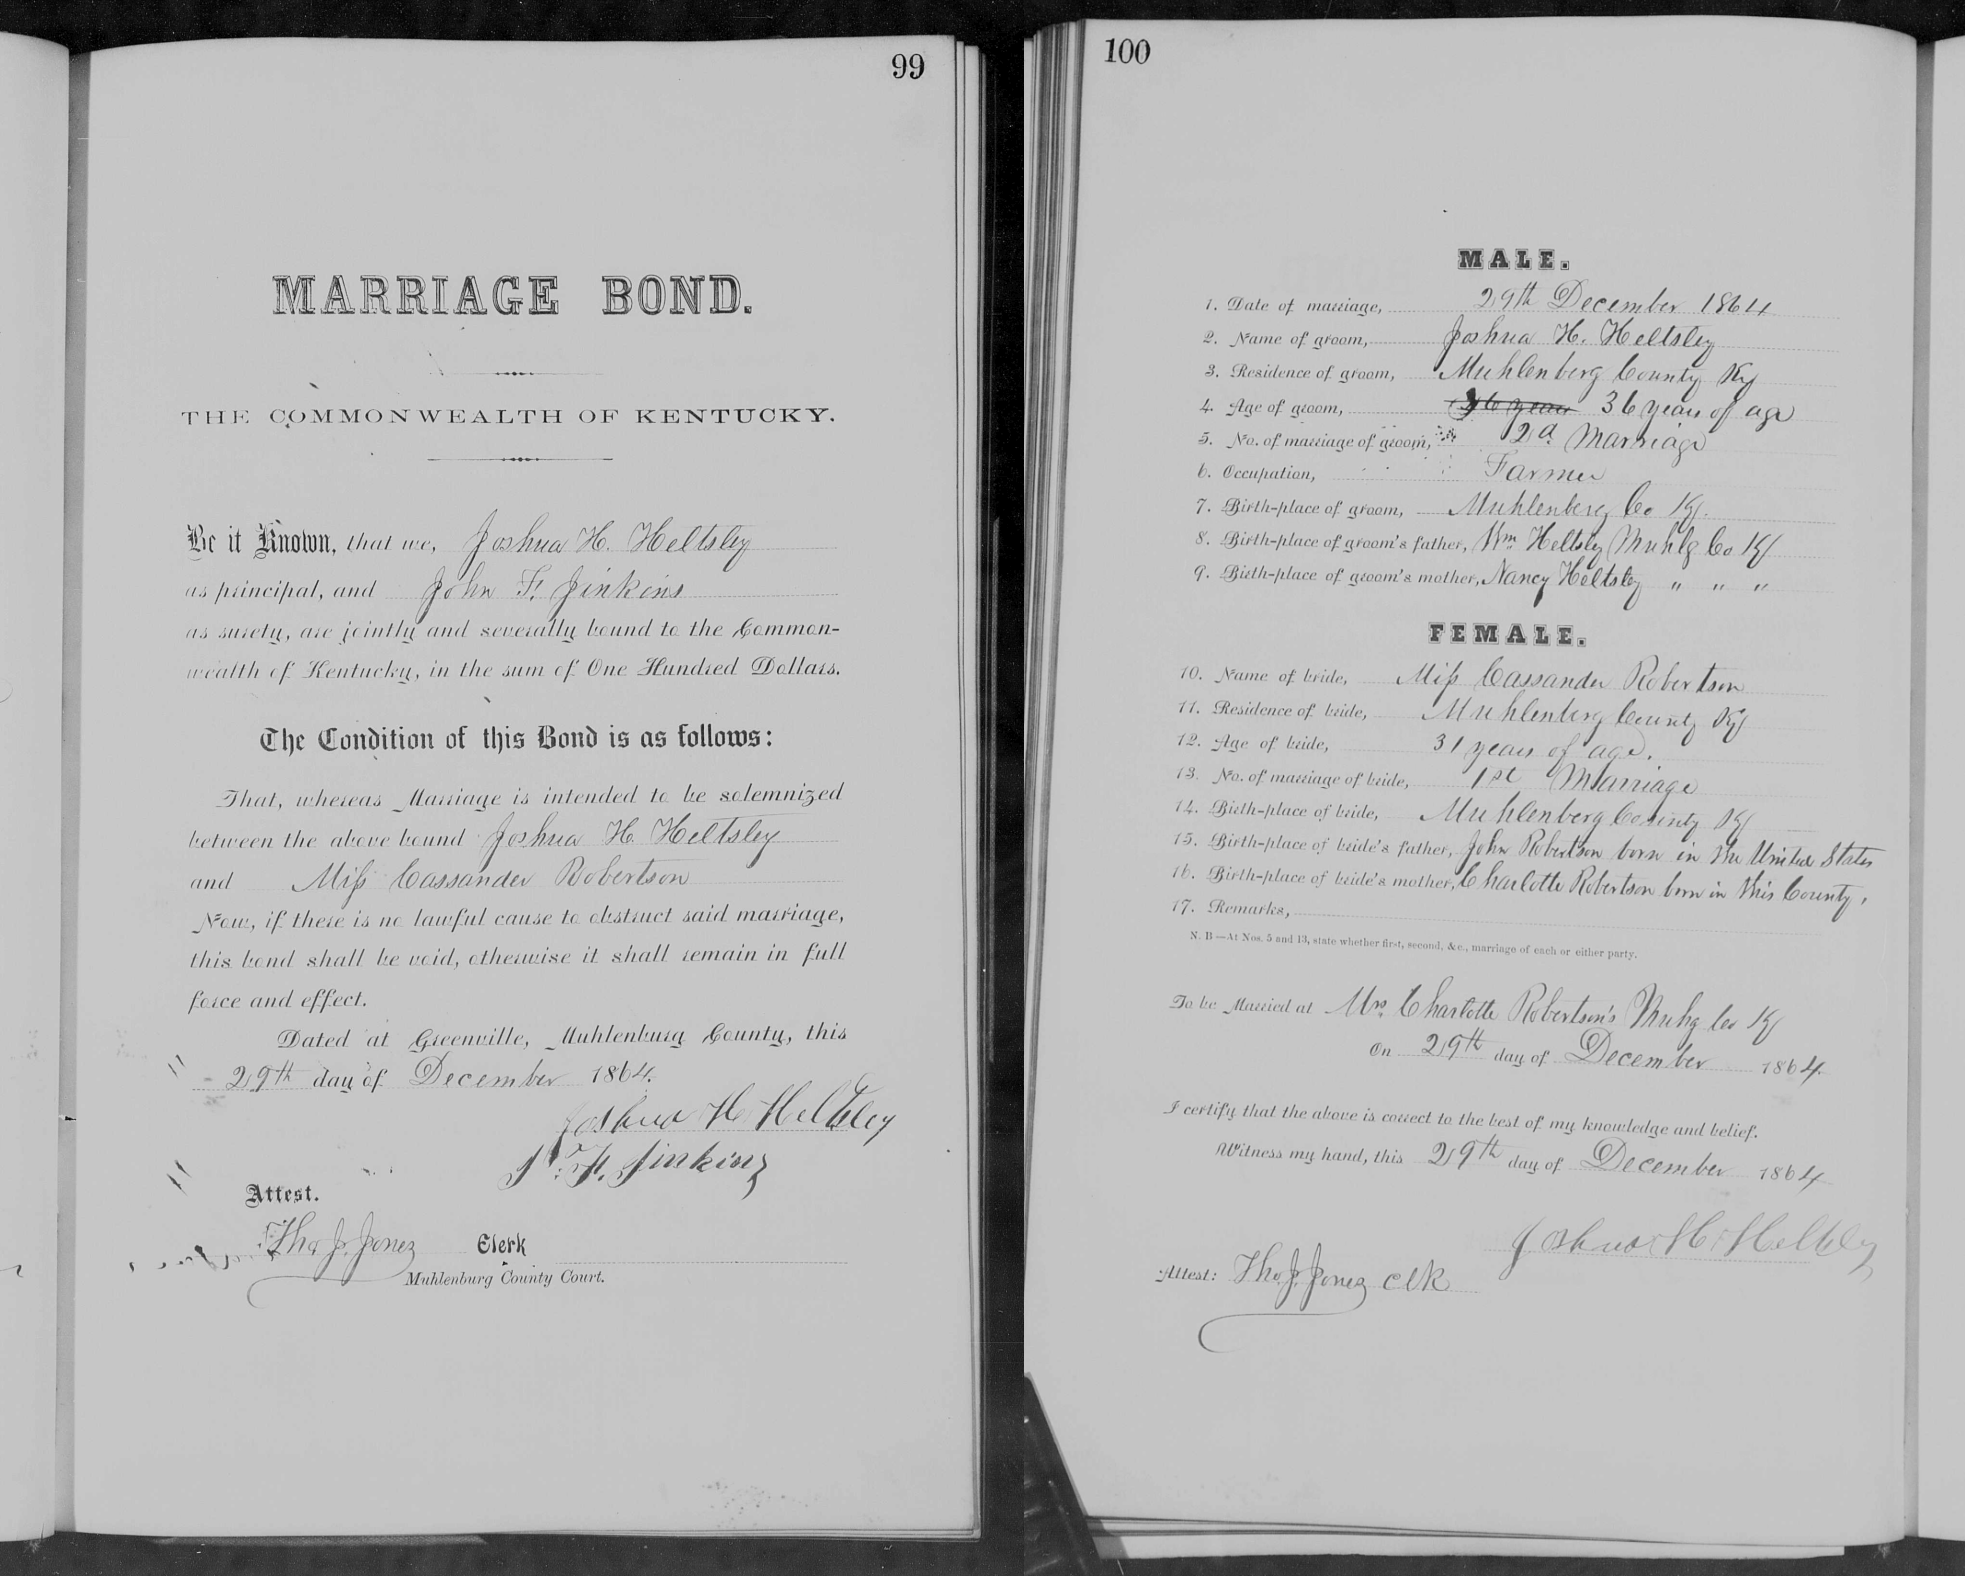 99
MARRIAGE BOND.
THE COMMONWEALTH OF KENTUCKY.
Be it Known, that we, Joshua H. Heltsley
as principal, and John F. Jinkins
as surety, are jointly and severally bound to the Common-
wealth of Kentucky, in the sum of One Hundred Dollars.
The Condition of this Bond is as follows:
That, whereas Marriage is intended to be solemnized
between the above bound Joshua H. Heltsley
and Miss Cassander Robertson
Now, if there is no lawful cause to obstruct said marriage,
this bond shall be void, otherwise it shall remain in full
force and effect.
Dated at Greenville, Muhlenburg County, this
29th day of December 1864.
Joshua H Heltsley
J. F. Jinkins
Attest.
Tho. J. Jones Clerk
Muhlenburg County Court.
100
MALE.
1. Date of marriage, 29th December 1864
2. Name of groom, Joshua H. Heltsley
3. Residence of groom, Muhlenberg County Ky
4. Age of groom, 36 years of age
5. No. of marriage of groom, 2d. Marriage
6. Occupation, Farmer
7. Birth-place of groom, Muhlenberg Co Ky.
8. Birth-place of groom's father, Wm Heltsley Muhlg Co Ky
9. Birth-place of groom's mother, Nancy Heltsley " " "
FEMALE.
10. Name of bride, Miss Cassander Robertson
11. Residence of bride, Muhlenberg County Ky
12. Age of bride, 31 years of age.
13. No. of marriage of bride, 1st Marriage
14. Birth-place of bride, Muhlenberg County Ky
15. Birth-place of bride's father, John Robertson born in the United States
16. Birth-place of bride's mother, Charlotte Robertson born in this County.
17. Remarks,
N. B—At Nos. 5 and 13, state whether first, second, &c., marriage of each or either party.
To be Married at Mrs. Charlotte Robertson's Muhg Co Ky
On 29th day of December 1864.
I certify that the above is correct to the best of my knowledge and belief.
Witness my hand, this 29th day of December 1864
Joshua H Heltsley
Attest: Tho. J. Jones Clk